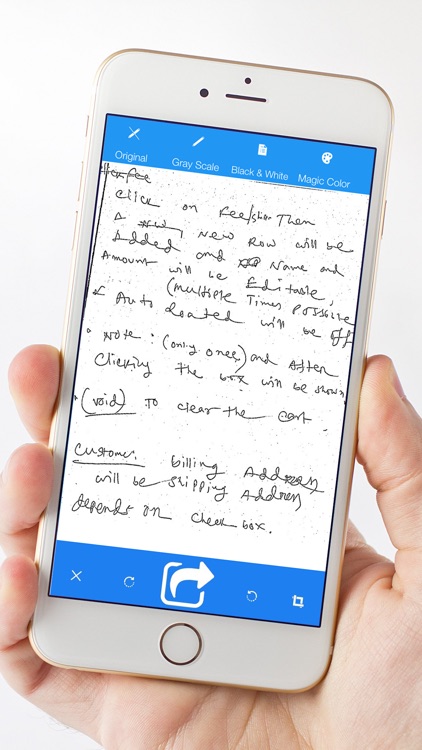 Original
Gray Scale
Black & White
Magic Color
click on Fee/stor Then
A New Row will be
Added and Name and
Amount will be Editable,
(Multiple Times Possible
Auto Loated will be off
Note: (only once) and After
Clicking the box will be shown
(void) To clear the cart.
Customer: billing Address
will be shipping Address
depends on check box.